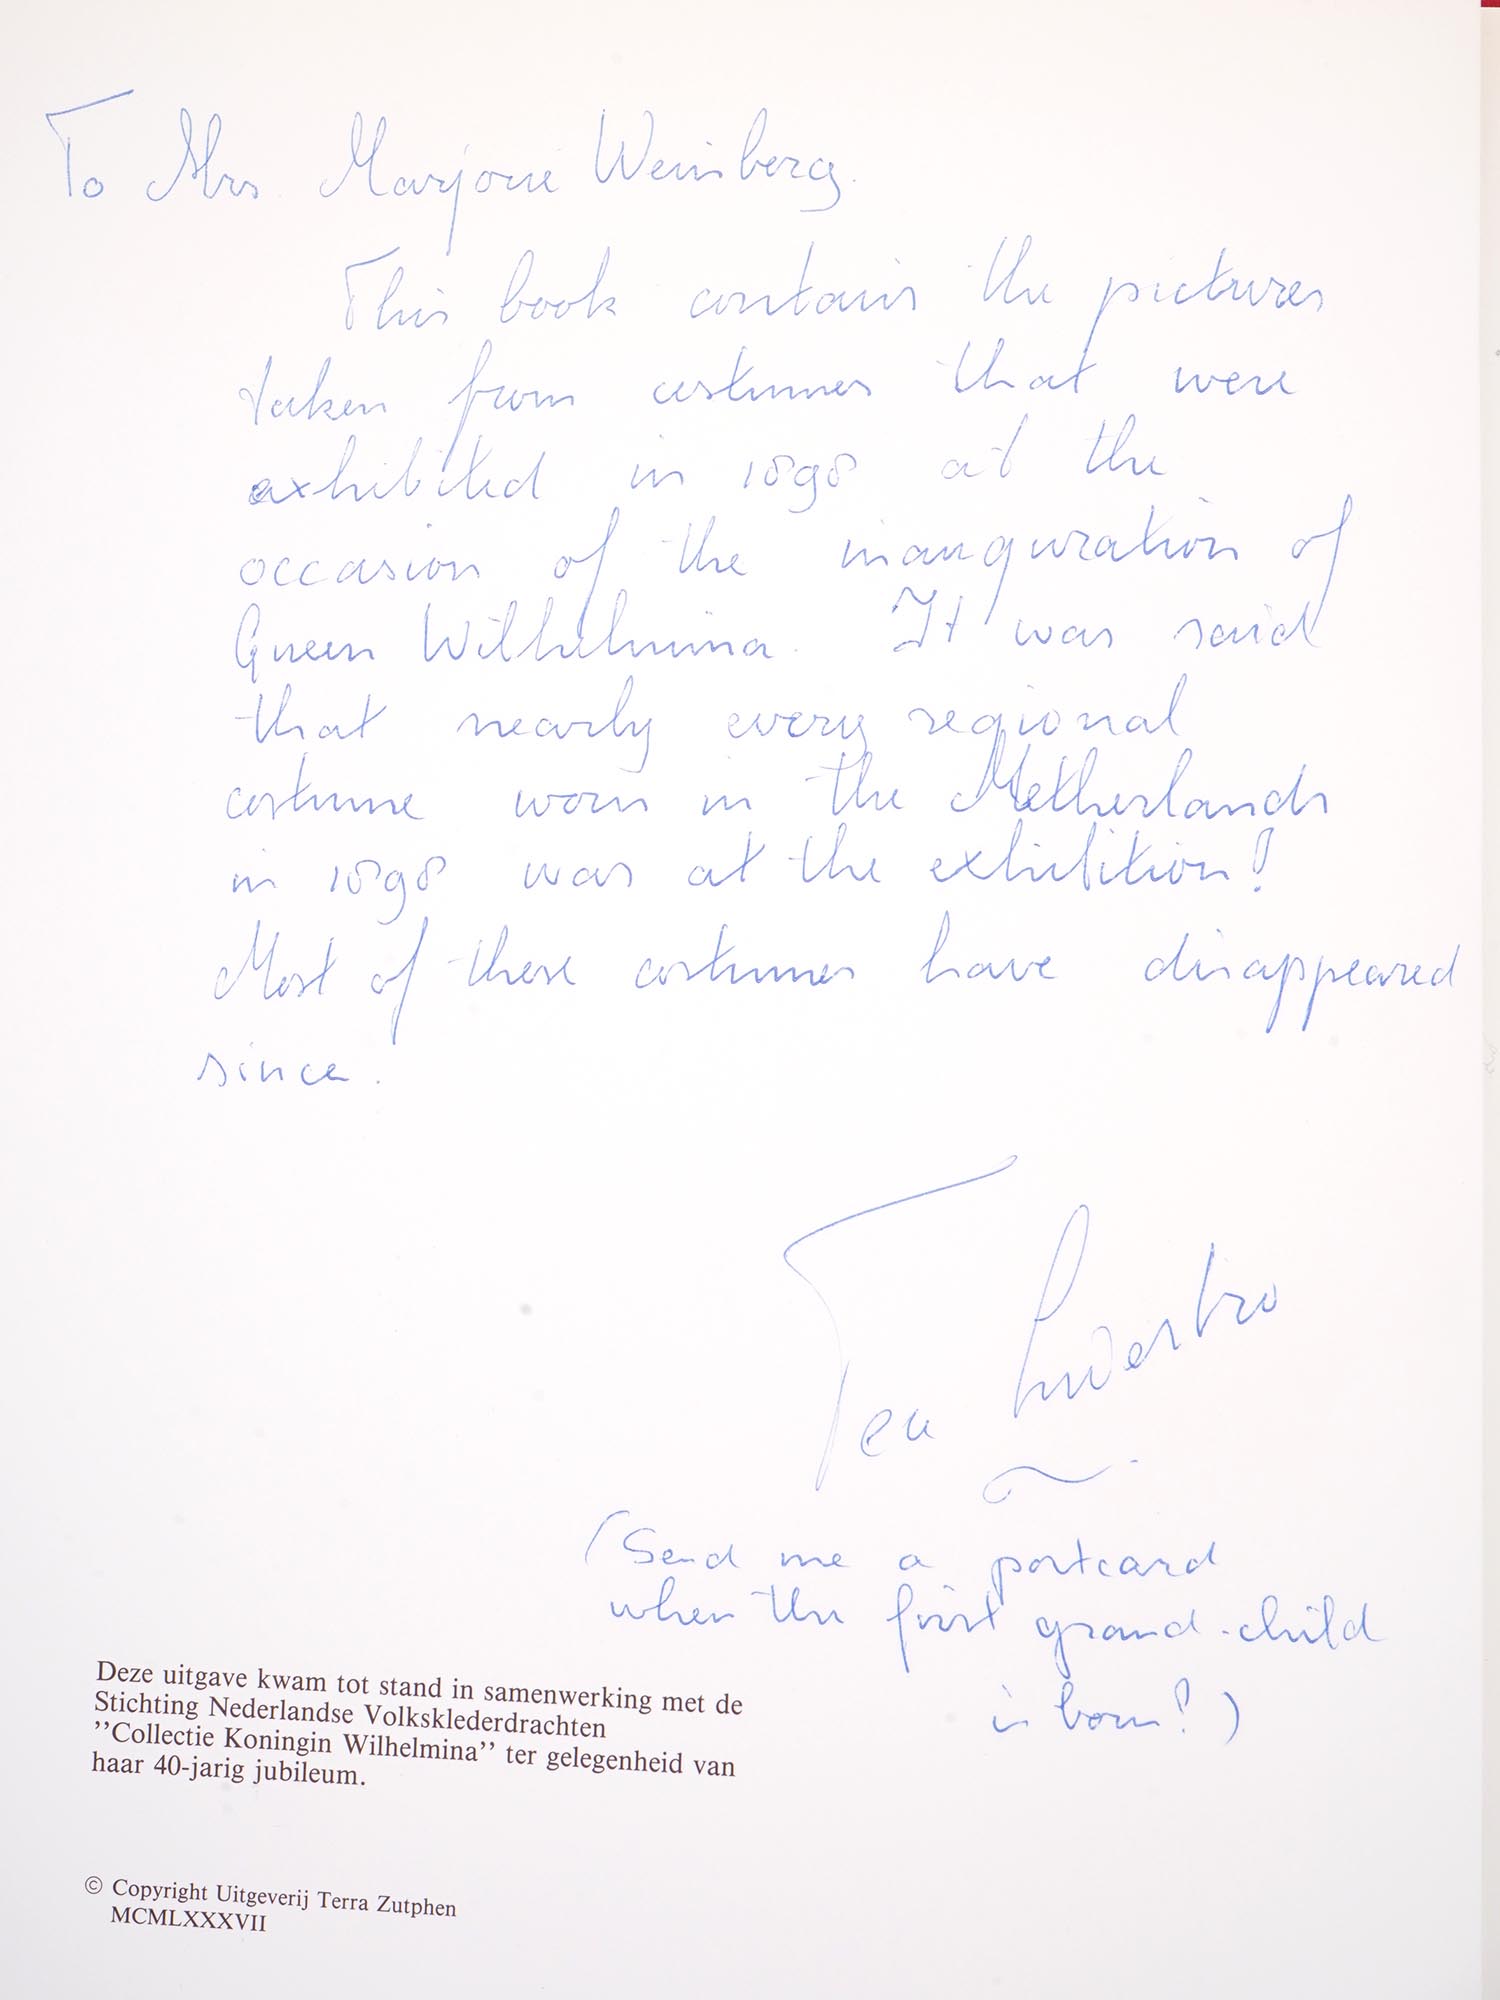 To Mrs. Marjorie Weinberg.
This book contains the pictures
taken from costumes that were
exhibited in 1898 at the
occasion of the inauguration of
Queen Wilhelmina. It was said
that nearly every regional
costume worn in the Netherlands
in 1898 was at the exhibition!
Most of these costumes have disappeared
since.
(Send me a postcard
when the first grand-child
is born!)
Deze uitgave kwam tot stand in samenwerking met de
Stichting Nederlandse Volksklederdrachten
’’Collectie Koningin Wilhelmina’’ ter gelegenheid van
haar 40-jarig jubileum.
© Copyright Uitgeverij Terra Zutphen
MCMLXXXVII